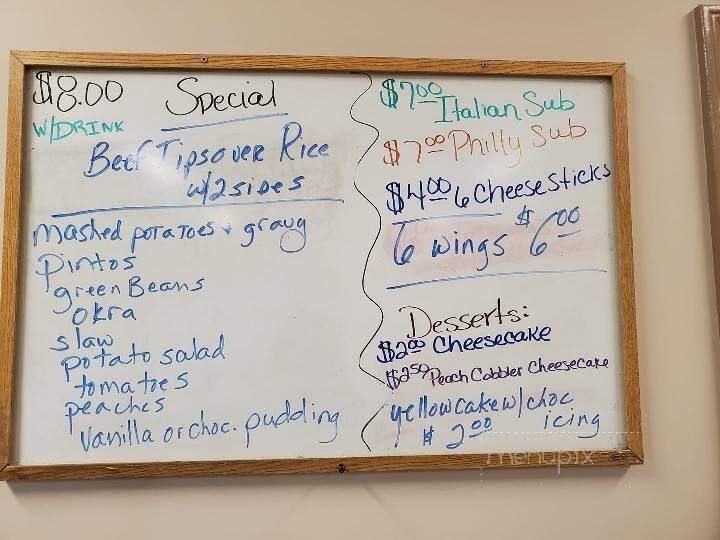 $8.00 Special
W/DRINK
Beef Tips over Rice
w/2 sides
mashed potatoes & gravy
pintos
green Beans
okra
slaw
potato salad
tomatoes
peaches
Vanilla or choc. pudding
$7.00 Italian Sub
$7.00 Philly Sub
$4.00 6 Cheese Sticks
6 wings $6.00
Desserts:
$2.00 Cheesecake
$2.50 Peach Cobbler Cheesecake
yellow cake w/choc
icing
$2.00
menupix